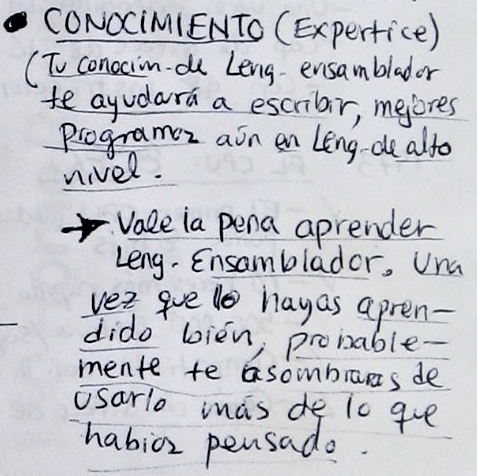 • CONOCIMIENTO (Expertice)
(Tu conocim. de Leng. ensamblador
te ayudará a escribir, mejores
programas aún en Leng. de alto
nivel.
→ Vale la pena aprender
Leng. Ensamblador. Una
vez que lo hayas apren-
dido bién, probable-
mente te asombraras de
usarlo más de lo que
habias pensado.